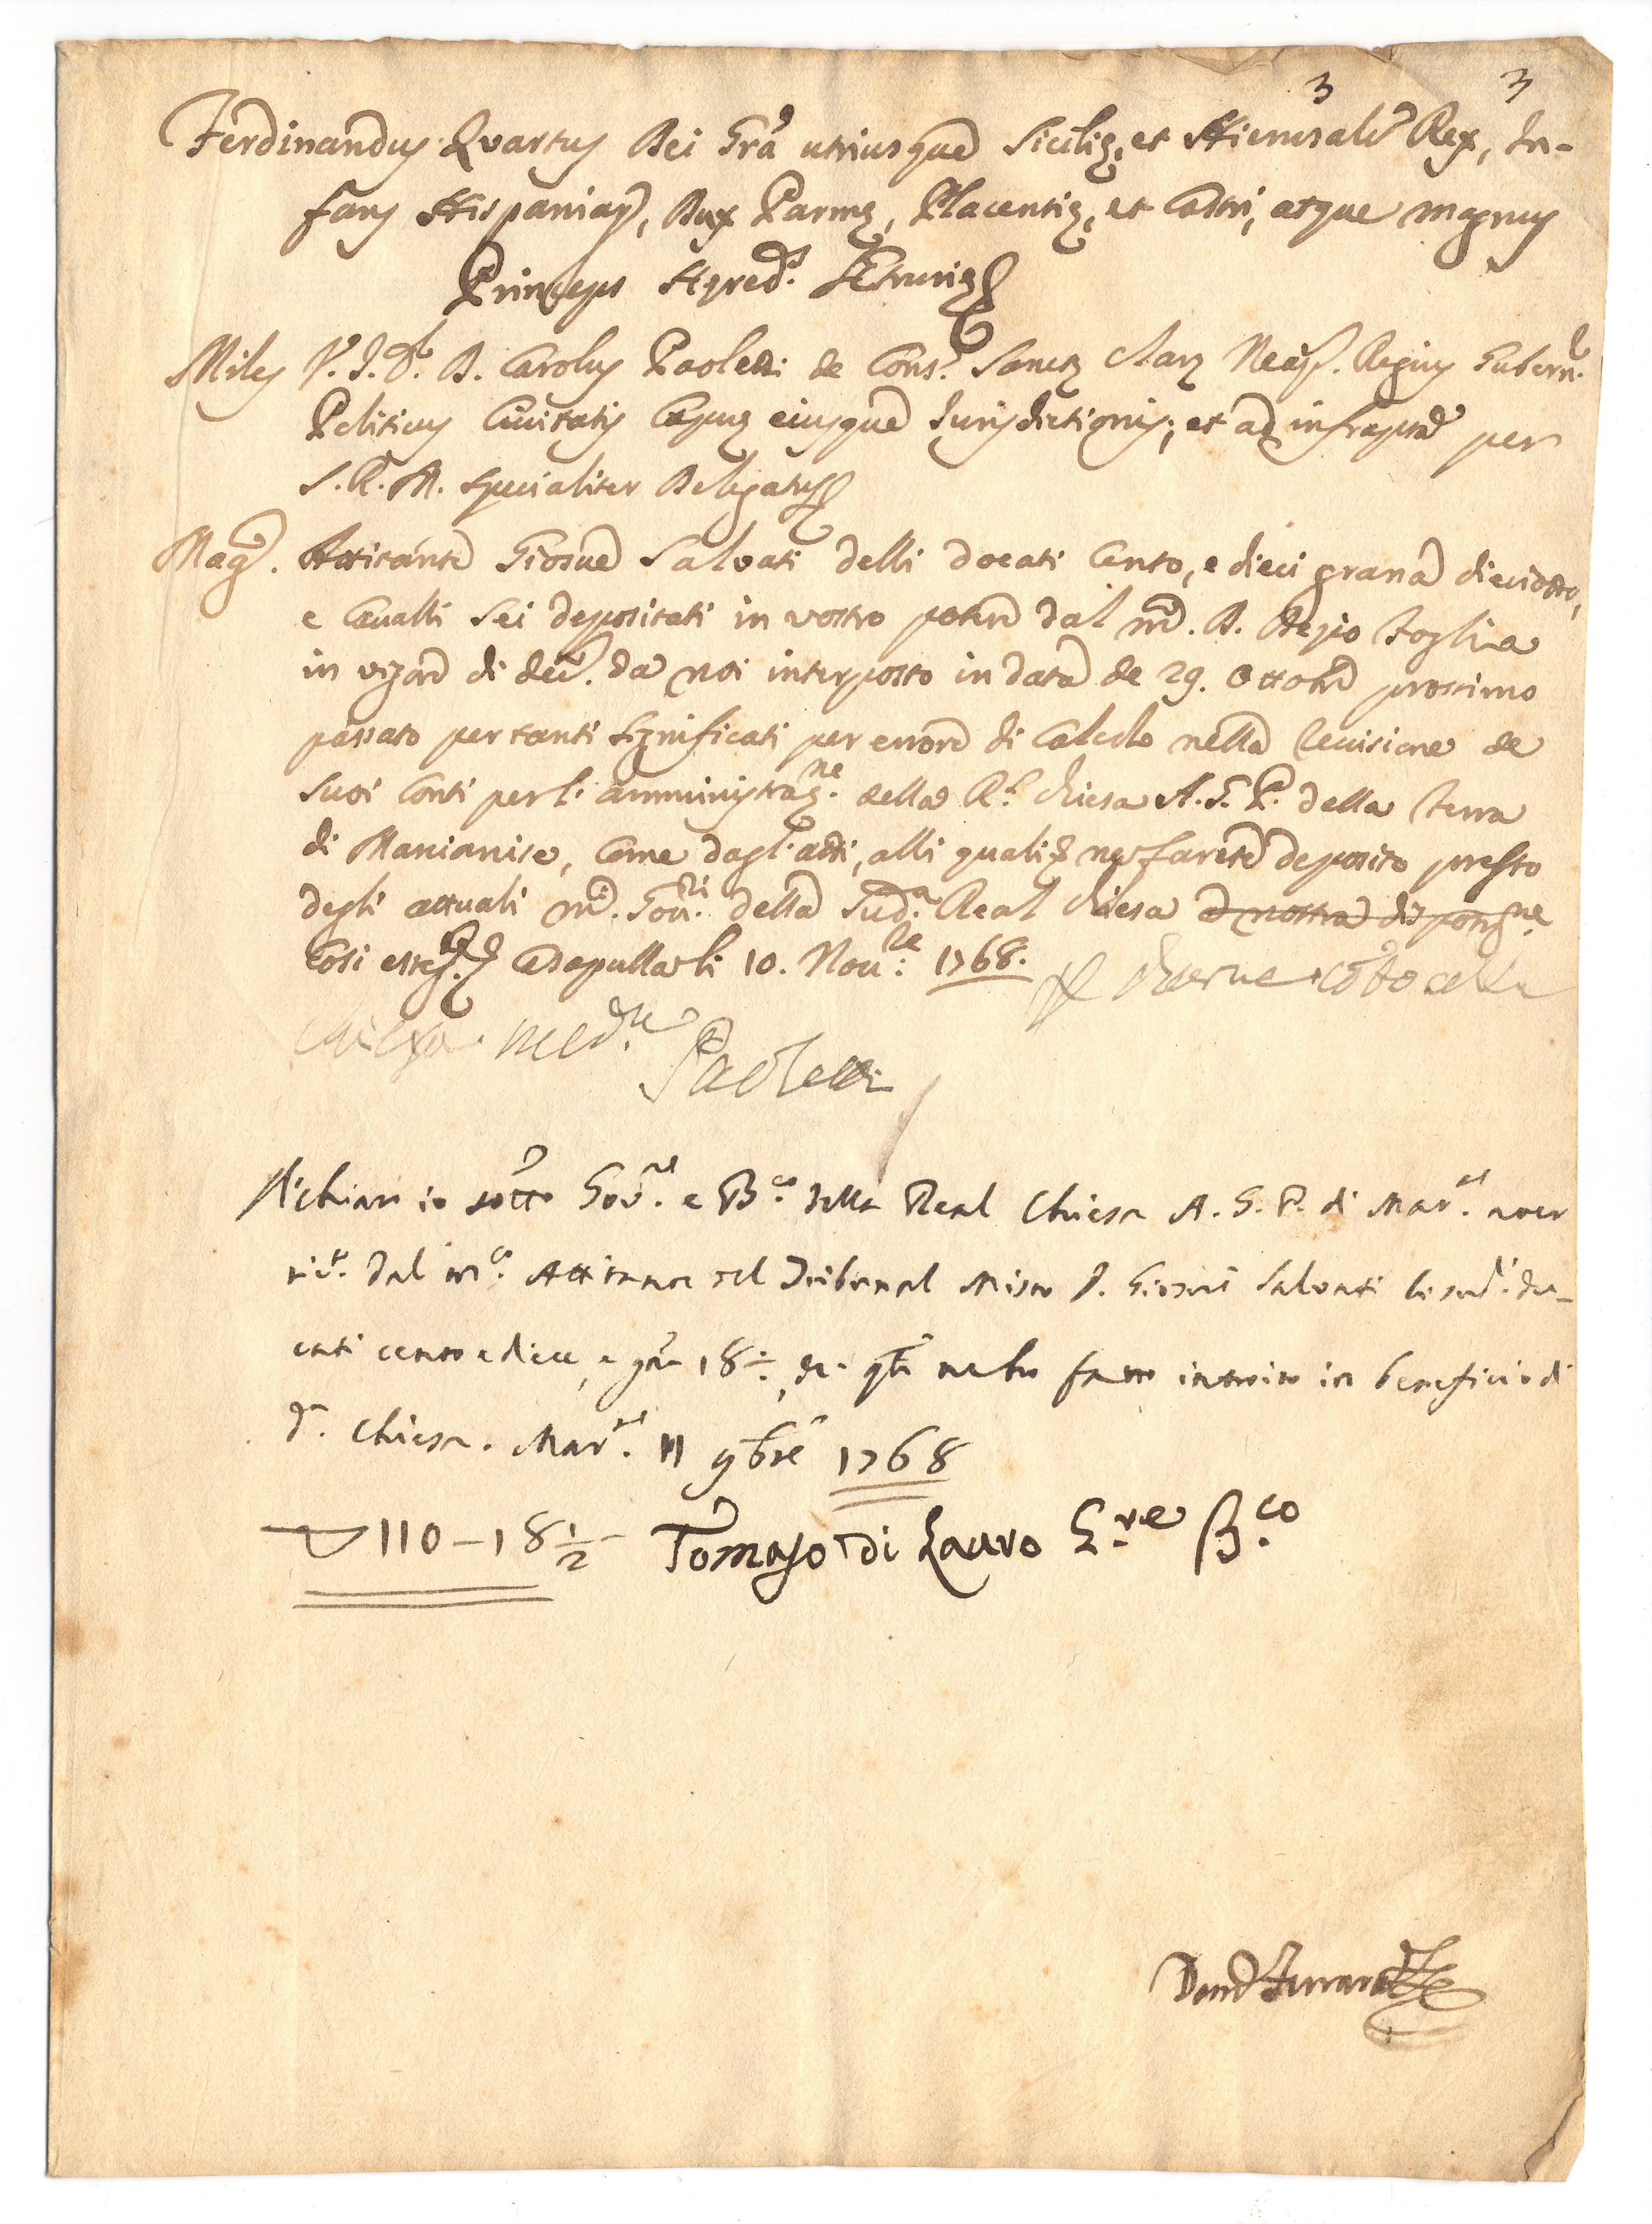 3 3
Ferdinandus Quartus Dei Grã utriusque Siciliæ, et Hierusalẽ Rex, In-
fans Hispaniaȓ, Dux Parmæ, Placentiæ, et Castri, atque magnus
Princeps Hæred.s Etruriæ
Miles V. J. D.r D. Carolus Paoletti de Cons.o Sanctæ Claræ Neap. Regius Gubern.r
Politicus Civitatis Capuæ eiusque Jurisdictionis; et ad infraptã per
S. R. M. specialiter Delegatus
Mag.co Attitante Giosue Salvati delli docati Cento, e dieci grana dieciotto,
e Cavalli Sei depositati in vostro potere dal m̃. D. Foglia
in vigore di deč. da noi interposto in data de 29. Ottobre prossimo
passato per tanti significati per errore di Calcolo nella revisione de
Suoi Conti per l' amministraz.ne della R.l Chiesa A. G. P. della Terra
di Marianise, Come dagl' atti, alli quali ne farete deposito presso
degli attuali m̃i. Gov.ri della Sud.a Real Chiesa a nostra disposiz.ne
Cosi Casapulla li 10. Nov.re 1768.
Paoletti
Dichiaro io sotto Gov.re e B.co della Real Chiesa A. G. P. di Mar.se aver
ric.to dal m.co Attitante del Tribunal Misto D. Giosuè Salvati li sud.i du-
cati cento e diece, e gra 18 ½, de q̃li ne ho fatto introito in beneficio di
d.a Chiesa. Mar.se 11 9bre 1768
D 110 – 18 ½ – Tomaso di Lauro G.re B.co